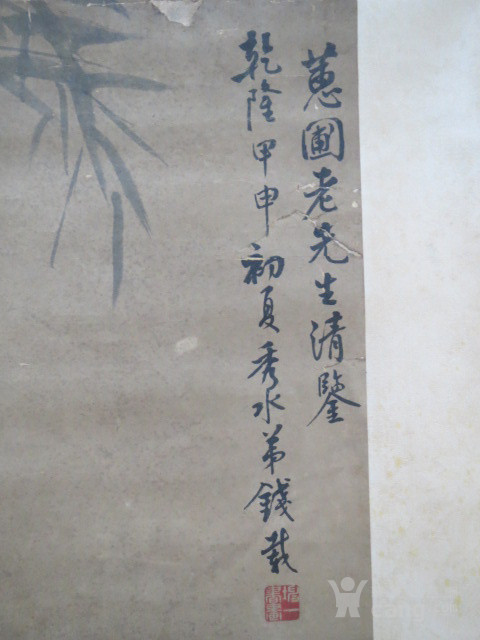 蔥圃老先生清鑒
乾隆甲申初夏秀水弟錢載